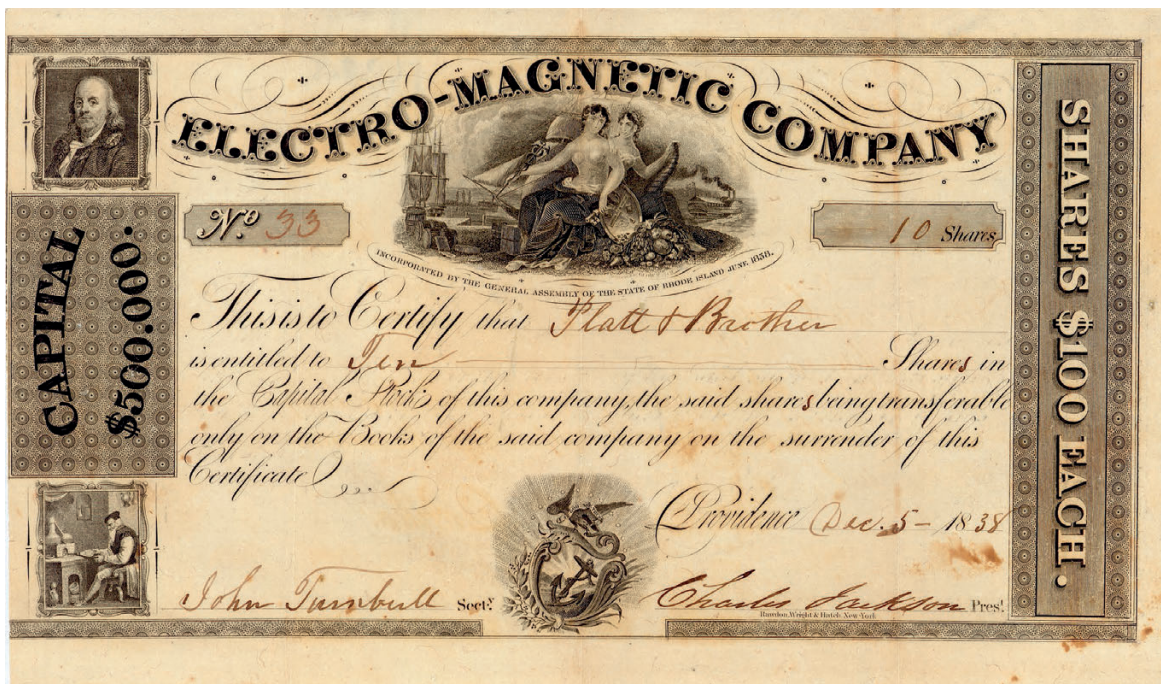 ELECTRO-MAGNETIC COMPANY
CAPITAL
$500.000.
SHARES $100 EACH.
No 33
10 Shares
INCORPORATED BY THE GENERAL ASSEMBLY OF THE STATE OF RHODE ISLAND JUNE 1838.
This is to Certify that Platt & Brother
is entitled to Ten Shares in
the Capital Stock of this company, the said shares being transferable
only on the Books of the said company on the surrender of this
Certificate
Providence Dec. 5 - 1838
John Turnbull Secty.
Charles Jackson Prest.
Rawdon, Wright & Hatch New-York